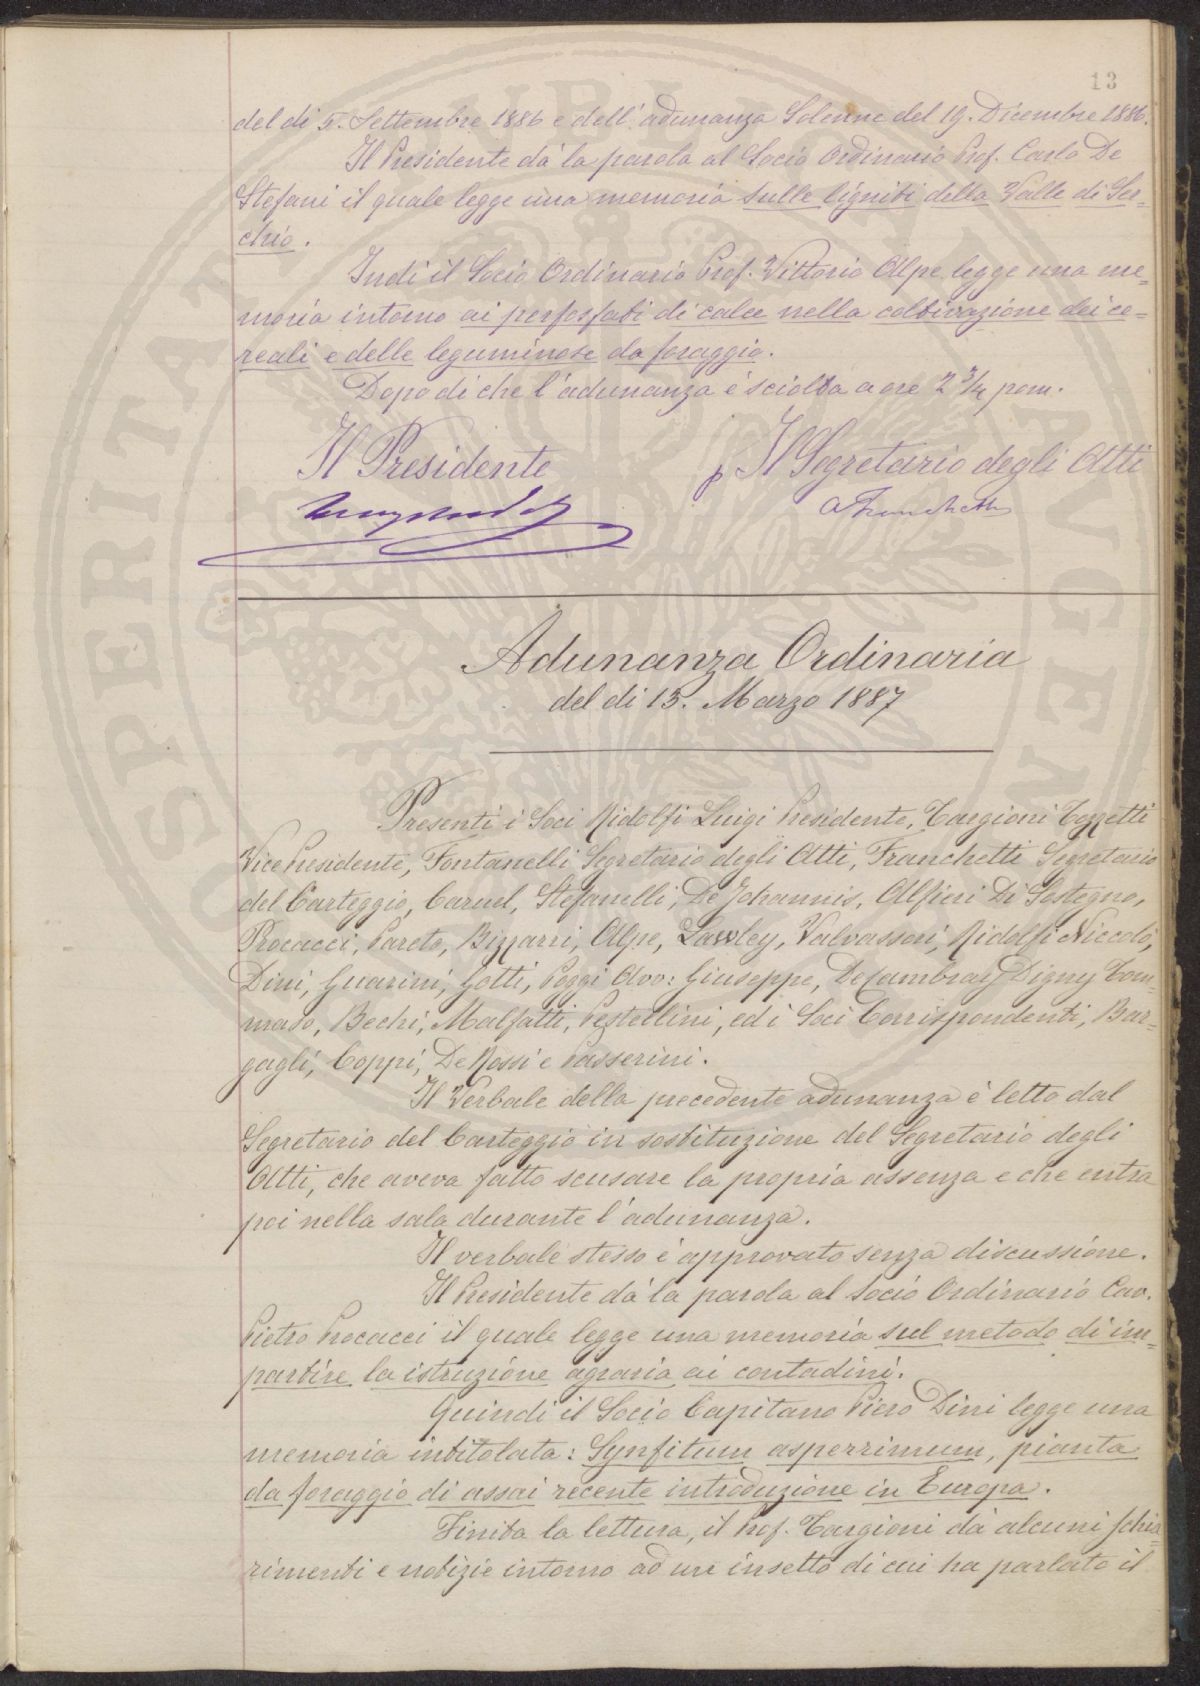 13
del di 5. Settembre 1886 e dell'adunanza Solenne del 19. Dicembre 1886.
Il Presidente dà la parola al Socio Ordinario Prof. Carlo De
Stefani il quale legge una memoria sulle ligniti della Valle di Ser=
chio.
Indi il Socio Ordinario Prof. Vittorio Alpe legge una me=
moria intorno ai perfosfati di calce nella coltivazione dei ce=
reali e delle leguminose da foraggio.
Dopo di che l'adunanza è sciolta a ore 2 3/4 pom.
Il Presidente
p Il Segretario degli Atti
A Franchetti
Adunanza Ordinaria
del di 13. Marzo 1887
Presenti i Soci Ridolfi Luigi Presidente, Targioni Tozzetti
Vice Presidente, Fontanelli Segretario degli Atti, Franchetti Segretario
del Carteggio, Caruel, Stefanelli, De Johannis, Alfieri Di Sostegno,
Procacci, Pareto, Bizzarri, Alpe, Lawley, Valvassori, Ridolfi Niccolò,
Dini, Guarini, Gotti, Poggi Avv: Giuseppe, De Cambray Digny Tom=
maso, Bechi, Malfatti, Pestellini, ed i Soci Corrispondenti, Bar=
gagli, Coppi, De Rossi e Passerini.
Il Verbale della precedente adunanza è letto dal
Segretario del Carteggio in sostituzione del Segretario degli
Atti, che aveva fatto scusare la propria assenza e che entra
poi nella sala durante l'adunanza.
Il verbale stesso è approvato senza discussione.
Il Presidente dà la parola al Socio Ordinario Cav.
Pietro Procacci il quale legge una memoria sul metodo di im=
partire la istruzione agraria ai contadini.
Quindi il Socio Capitano Piero Dini legge una
memoria intitolata: Synfitum asperrimum, pianta
da foraggio di assai recente introduzione in Europa.
Finita la lettura, il Prof. Targioni dà alcuni schia
rimenti e notizie intorno ad un insetto di cui ha parlato il